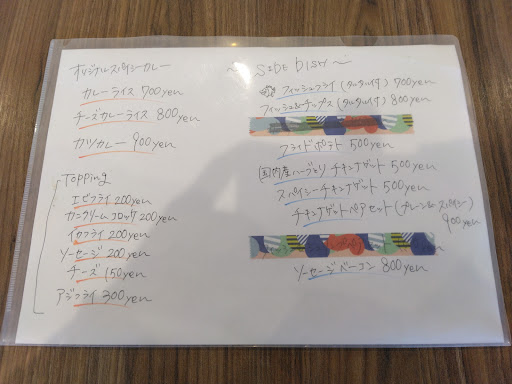 オリジナルスパイシーカレー
カレーライス 700yen
チーズカレーライス 800yen
カツカレー 900yen
Topping
エビフライ 200yen
カニクリームコロッケ 200yen
イカフライ 200yen
ソーセージ 200yen
チーズ 150yen
アジフライ 300yen
～SIDE DISH～
フィッシュフライ (タルタル付) 700yen
フィッシュ&チップス (タルタル付) 800yen
フライドポテト 500yen
国内産ハーブどりチキンナゲット 500yen
スパイシーチキンナゲット 500yen
チキンナゲットペアセット (プレーン&スパイシー)
900yen
ソーセージベーコン 800yen